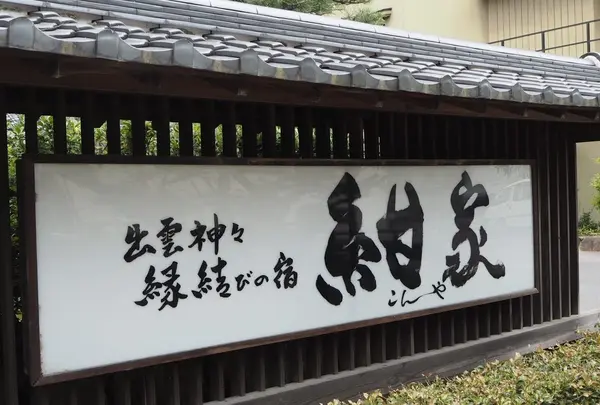 出雲神々
縁結びの宿
紺家
こんや